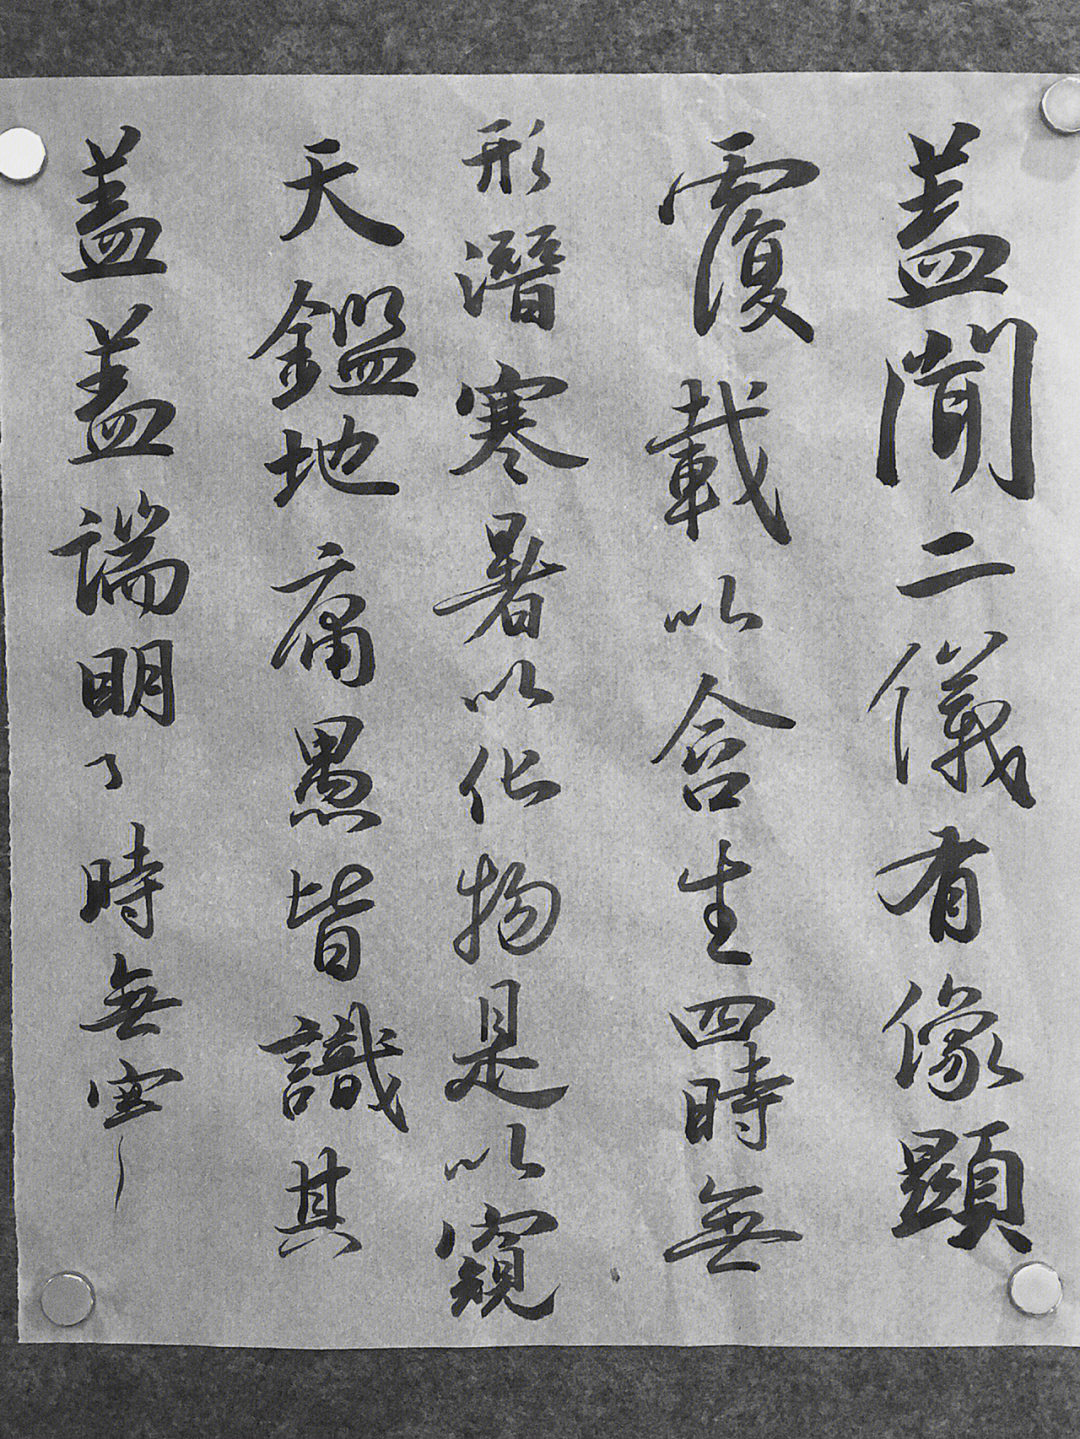 盖聞二儀有像顯
覆載以含生四時無
形潛寒暑以化物是以窺
天鑑地庸愚皆識其
盖盖端明時無